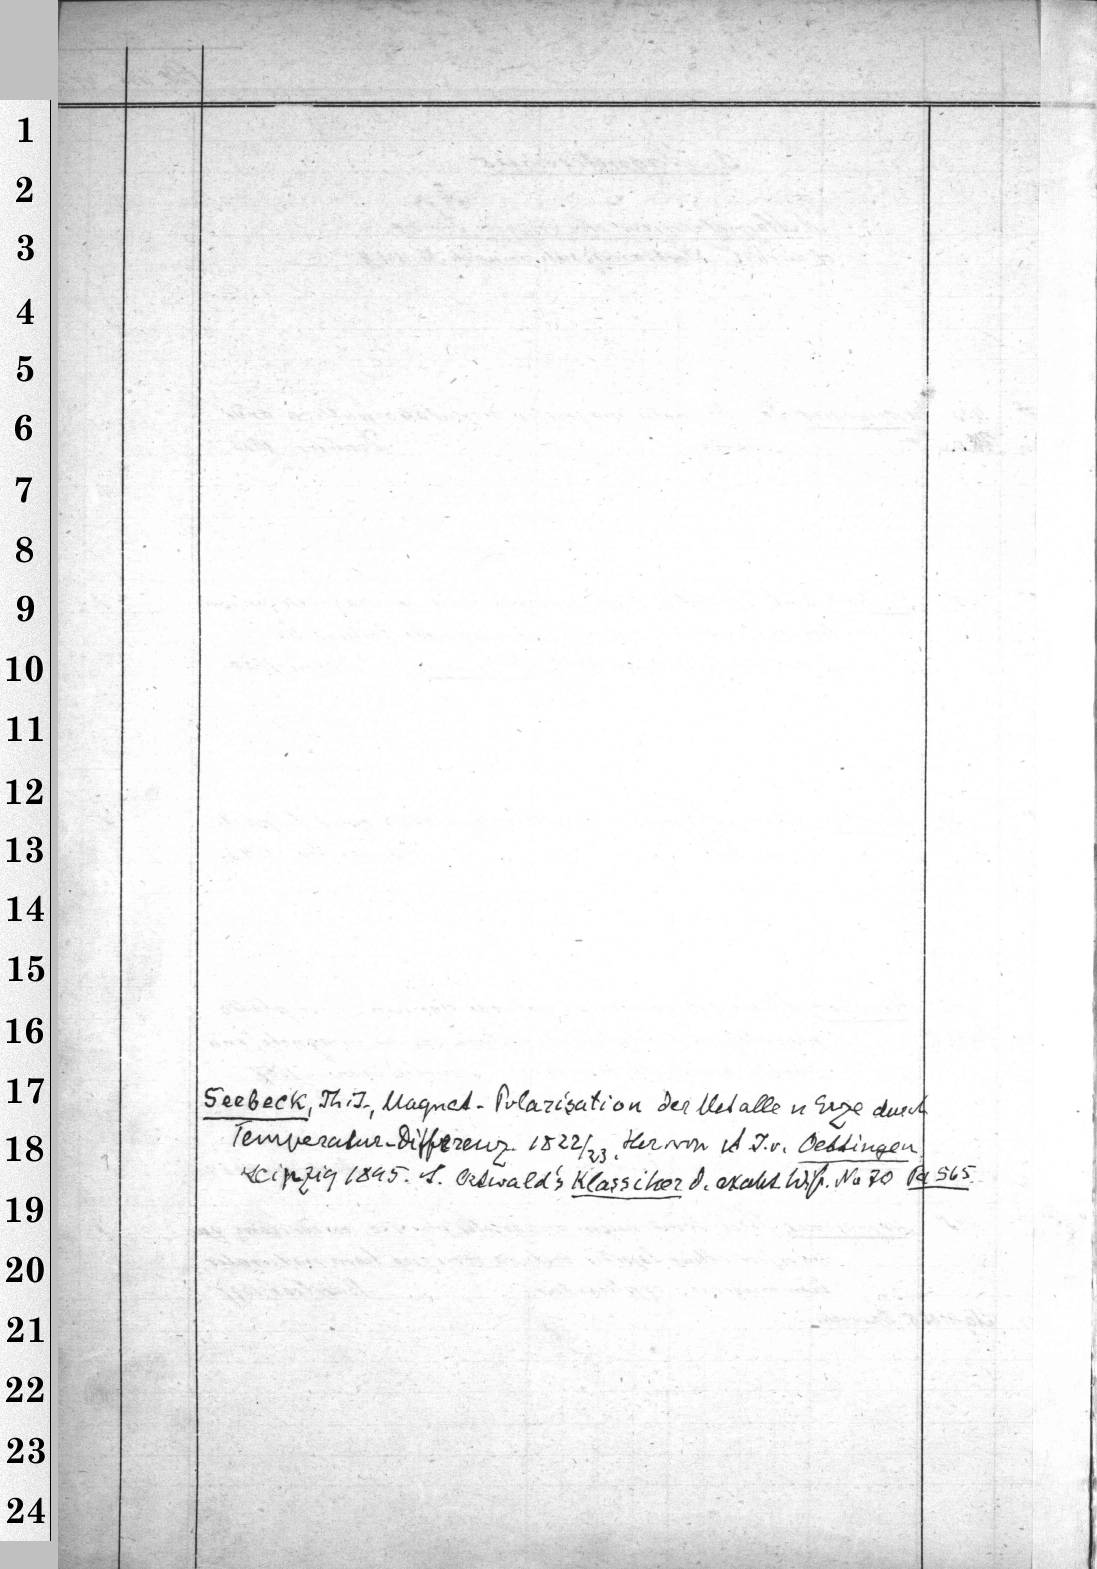 1
2
3
4
5
6
7
8
9
10
11
12
13
14
15
16
17
Seebeck, Th. J., Magnet. Polarisation der Metalle u Erze durch
18
Temperatur-Differenz. 1822/23. Her. von A J. v. Oettingen
Leipzig 1895. S. Ostwald's Klassiker d. exakt. Wiß. No 70 Pd 565.
19
20
21
22
23
24